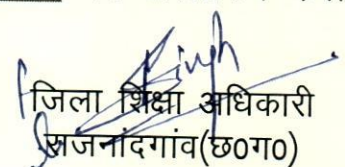 जिला शिक्षा अधिकारी
राजनांदगांव(छ०ग०)